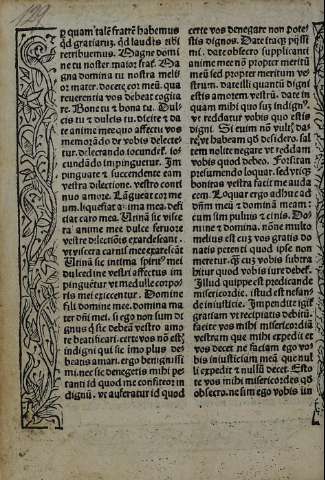 129
p quam talē fratrē habemus
qd gratiarū, qd laudis tibi
retribuemus. Magne domi
ne tu noster maior frater. Ma
gna domina tu nostra meli
or mater. docete cor meū. qua
reuerentia vos debeat cogita
re. Bone tu & bona tu. Dul
cis tu & dulcis tu. dicite & da
te anime mee quo affectu vos
memorādo de vobis delecte
tur. delectando iocundet. io
cūdando impinguetur. Im
pinguate & succendite eam
vestra dilectione. vestro conti
nuo amore. Lāgueat cor me
um. liquefiat aīa mea. defi
ciat caro mea. Utinā sic visce
ra anime mee dulce feruore
vestre dilectiōis exardescant.
vt viscera carnis mee exarescāt
Utinā sic intima spirit⁹ mei
dulcedine vestri affectus im
pinguētur vt medulle corpo
ris mei exiccentur. Domine
fili domine mee. domina ma
ter dñi mei. si ego non sum di
gnus q̄ sic debeā vestro amo
re beatificari. certe vos nō estis
indigni qui sic imo plus de
beatis amari. ergo benignissi
mi. nec sic denegetis mihi pe
tenti id quod me confiteor in
dignū. vt auferatur id quod
certe vos denegare non pote
stis dignos. Date itaq; pijssi
mi. date obsecro supplicanti
anime mee nō propter meritū
meū sed propter meritum ve
strum. date illi quantū digni
estis amorem vestrū. Date in
quam mihi quo suꝫ indign⁹.
vt reddatur vobis quo estis
digni. Si enim nō vultꝭ das
re, vt habeam qd desidero. sal
tem nolite negare vt reddam
vobis quod debeo. Forsitan
presumendo loquar. sed vtiqꝫ
bonitas vestra facit me auda
cem. Loquar ergo adhuc ad
dñm meum & dominā meam:
cum sim puluis & cinis. Do
mine & domina. nōne multo
melius est cuꝫ vos gratis do
natis petenti quod ipse non
meretur. q̄ cuꝫ vobis subtra
hitur quod vobis iure debet.
Illud quippe est predicande
misericordie. istud est nefan
de iniusticie. Impendite igit
gratiam vt recipiatis debitū.
facite vos mihi misericordiā
vestram que mihi expedit et
vos decet ne faciam ego vo
bis iniusticiam meā que nul
li expedit & nullū decet. Esto
te vos mihi misericordes qd
obsecro. ne sim ego vobis in